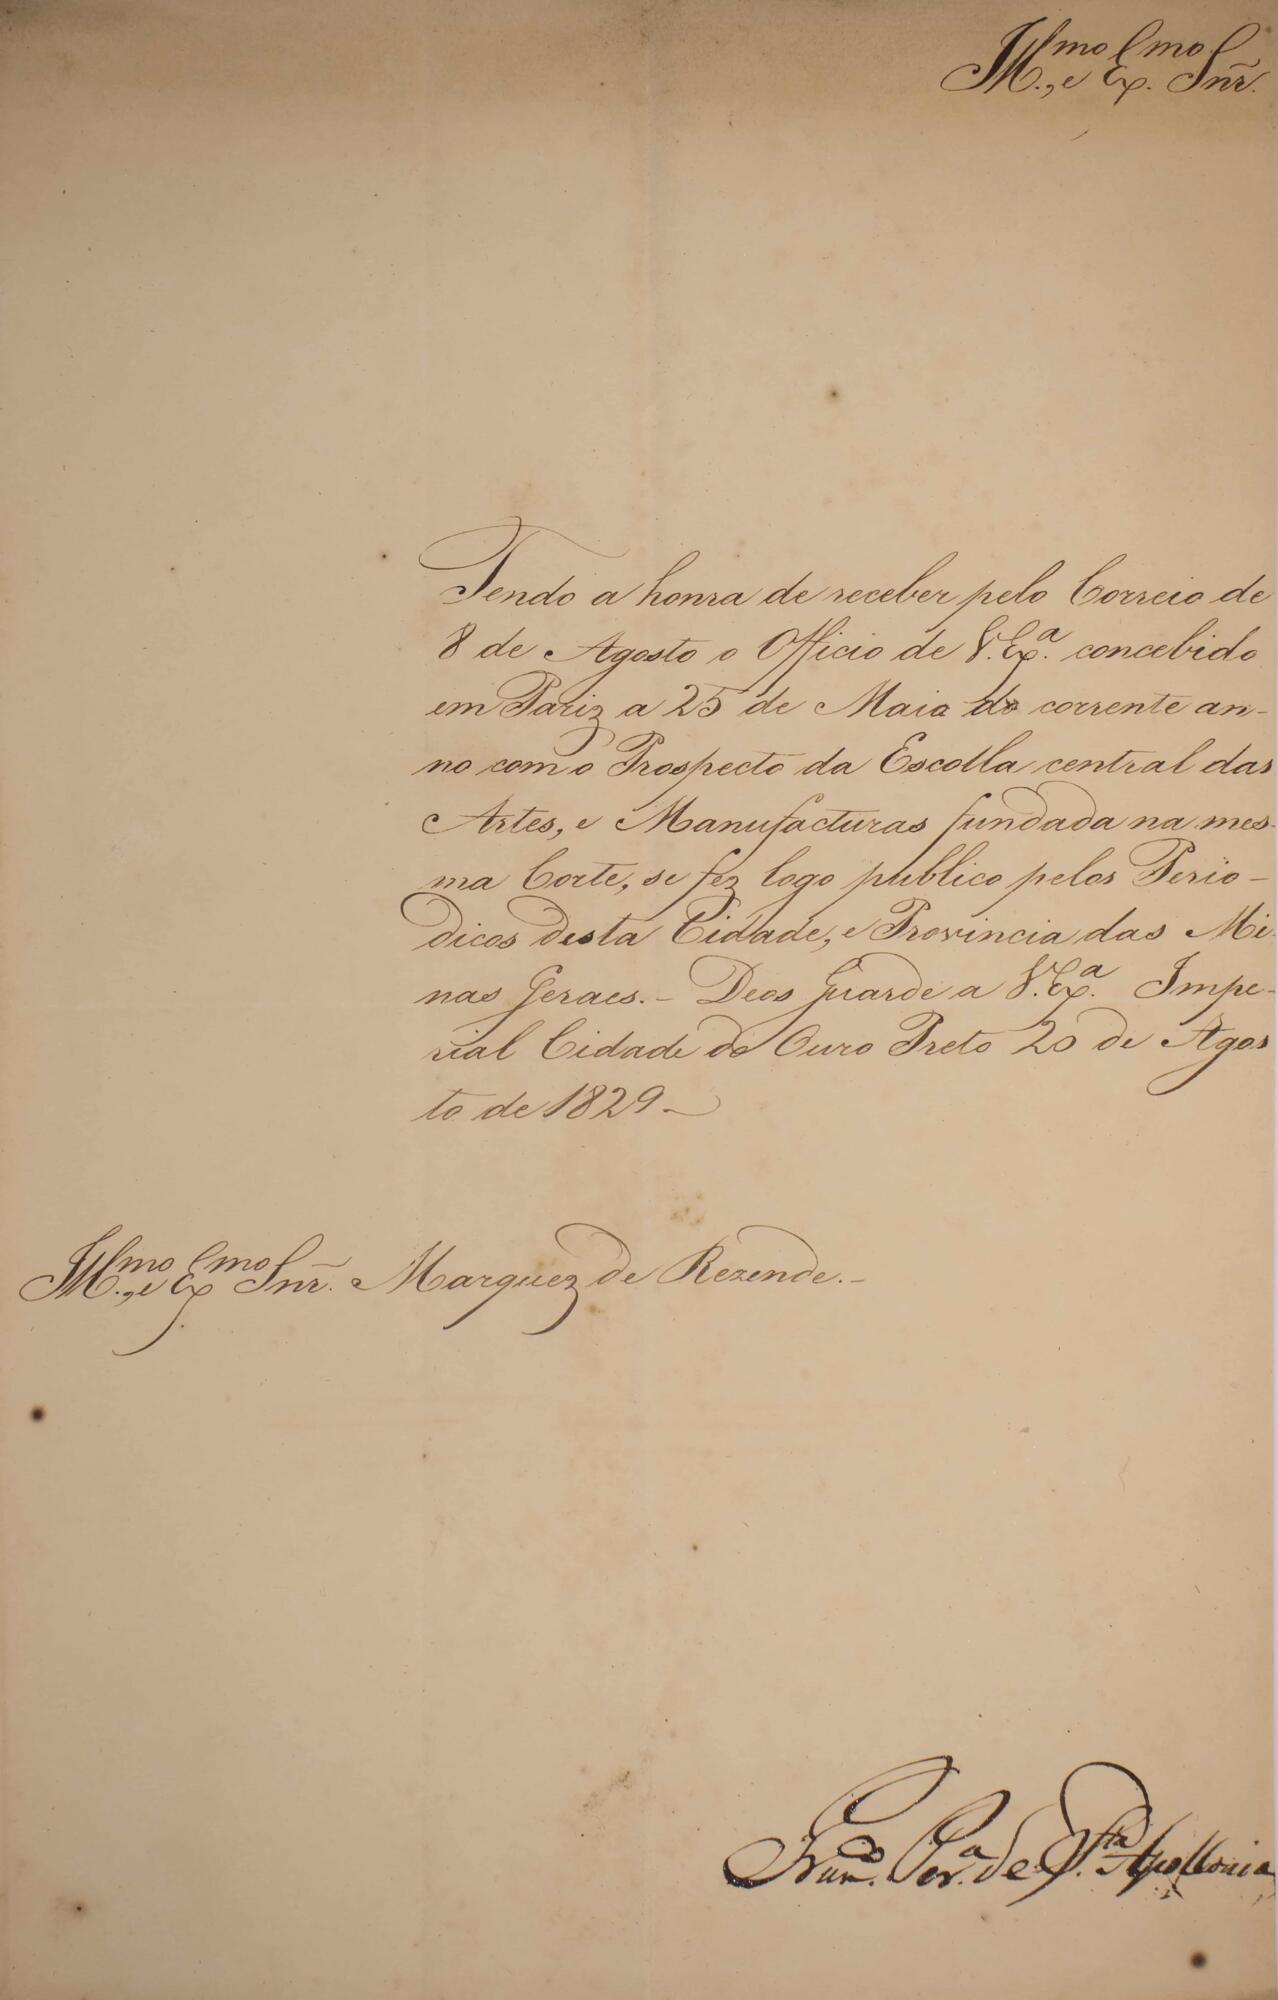 Ill.mo, e Ex.mo Snr.
Tendo a honra de receber pelo Correio de
8 de Agosto o Officio de V. Ex.a concebido
em Pariz a 25 de Maio do corrente an-
no com o Prospecto da Escolla central das
Artes, e Manufacturas fundada na mes-
ma Corte, se fez logo publico pelos Perio-
dicos desta Cidade, e Provincia das Mi-
nas Geraes. - Deos Guarde a V. Ex.a Impe-
rial Cidade do Ouro Preto 20 de Agos
to de 1829 -
Ill.mo, e Ex.mo Snr. Marquez de Rezende. -
Fran.co Per.a de S.ta Apollonia